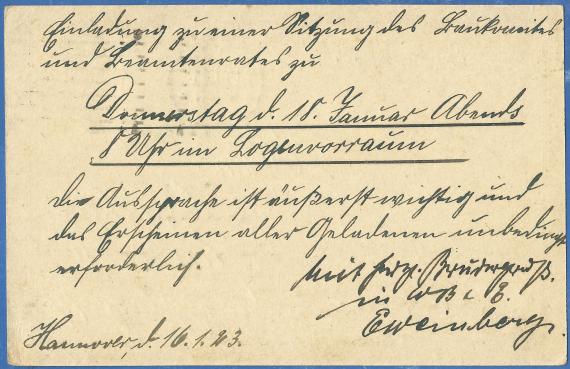 Einladung zu einer Sitzung des Baukomites
und Beamtenrates zu
Donnerstag d. 18. Januar Abends
8 Uhr im Logenvorraum
Die Aussprache ist äußerst wichtig und
das Erscheinen aller Geladenen unbedingt
erforderlich.
Mit herzl. Brudergruß.
in
EWeinberg.
Hannover, d. 16.1.23.